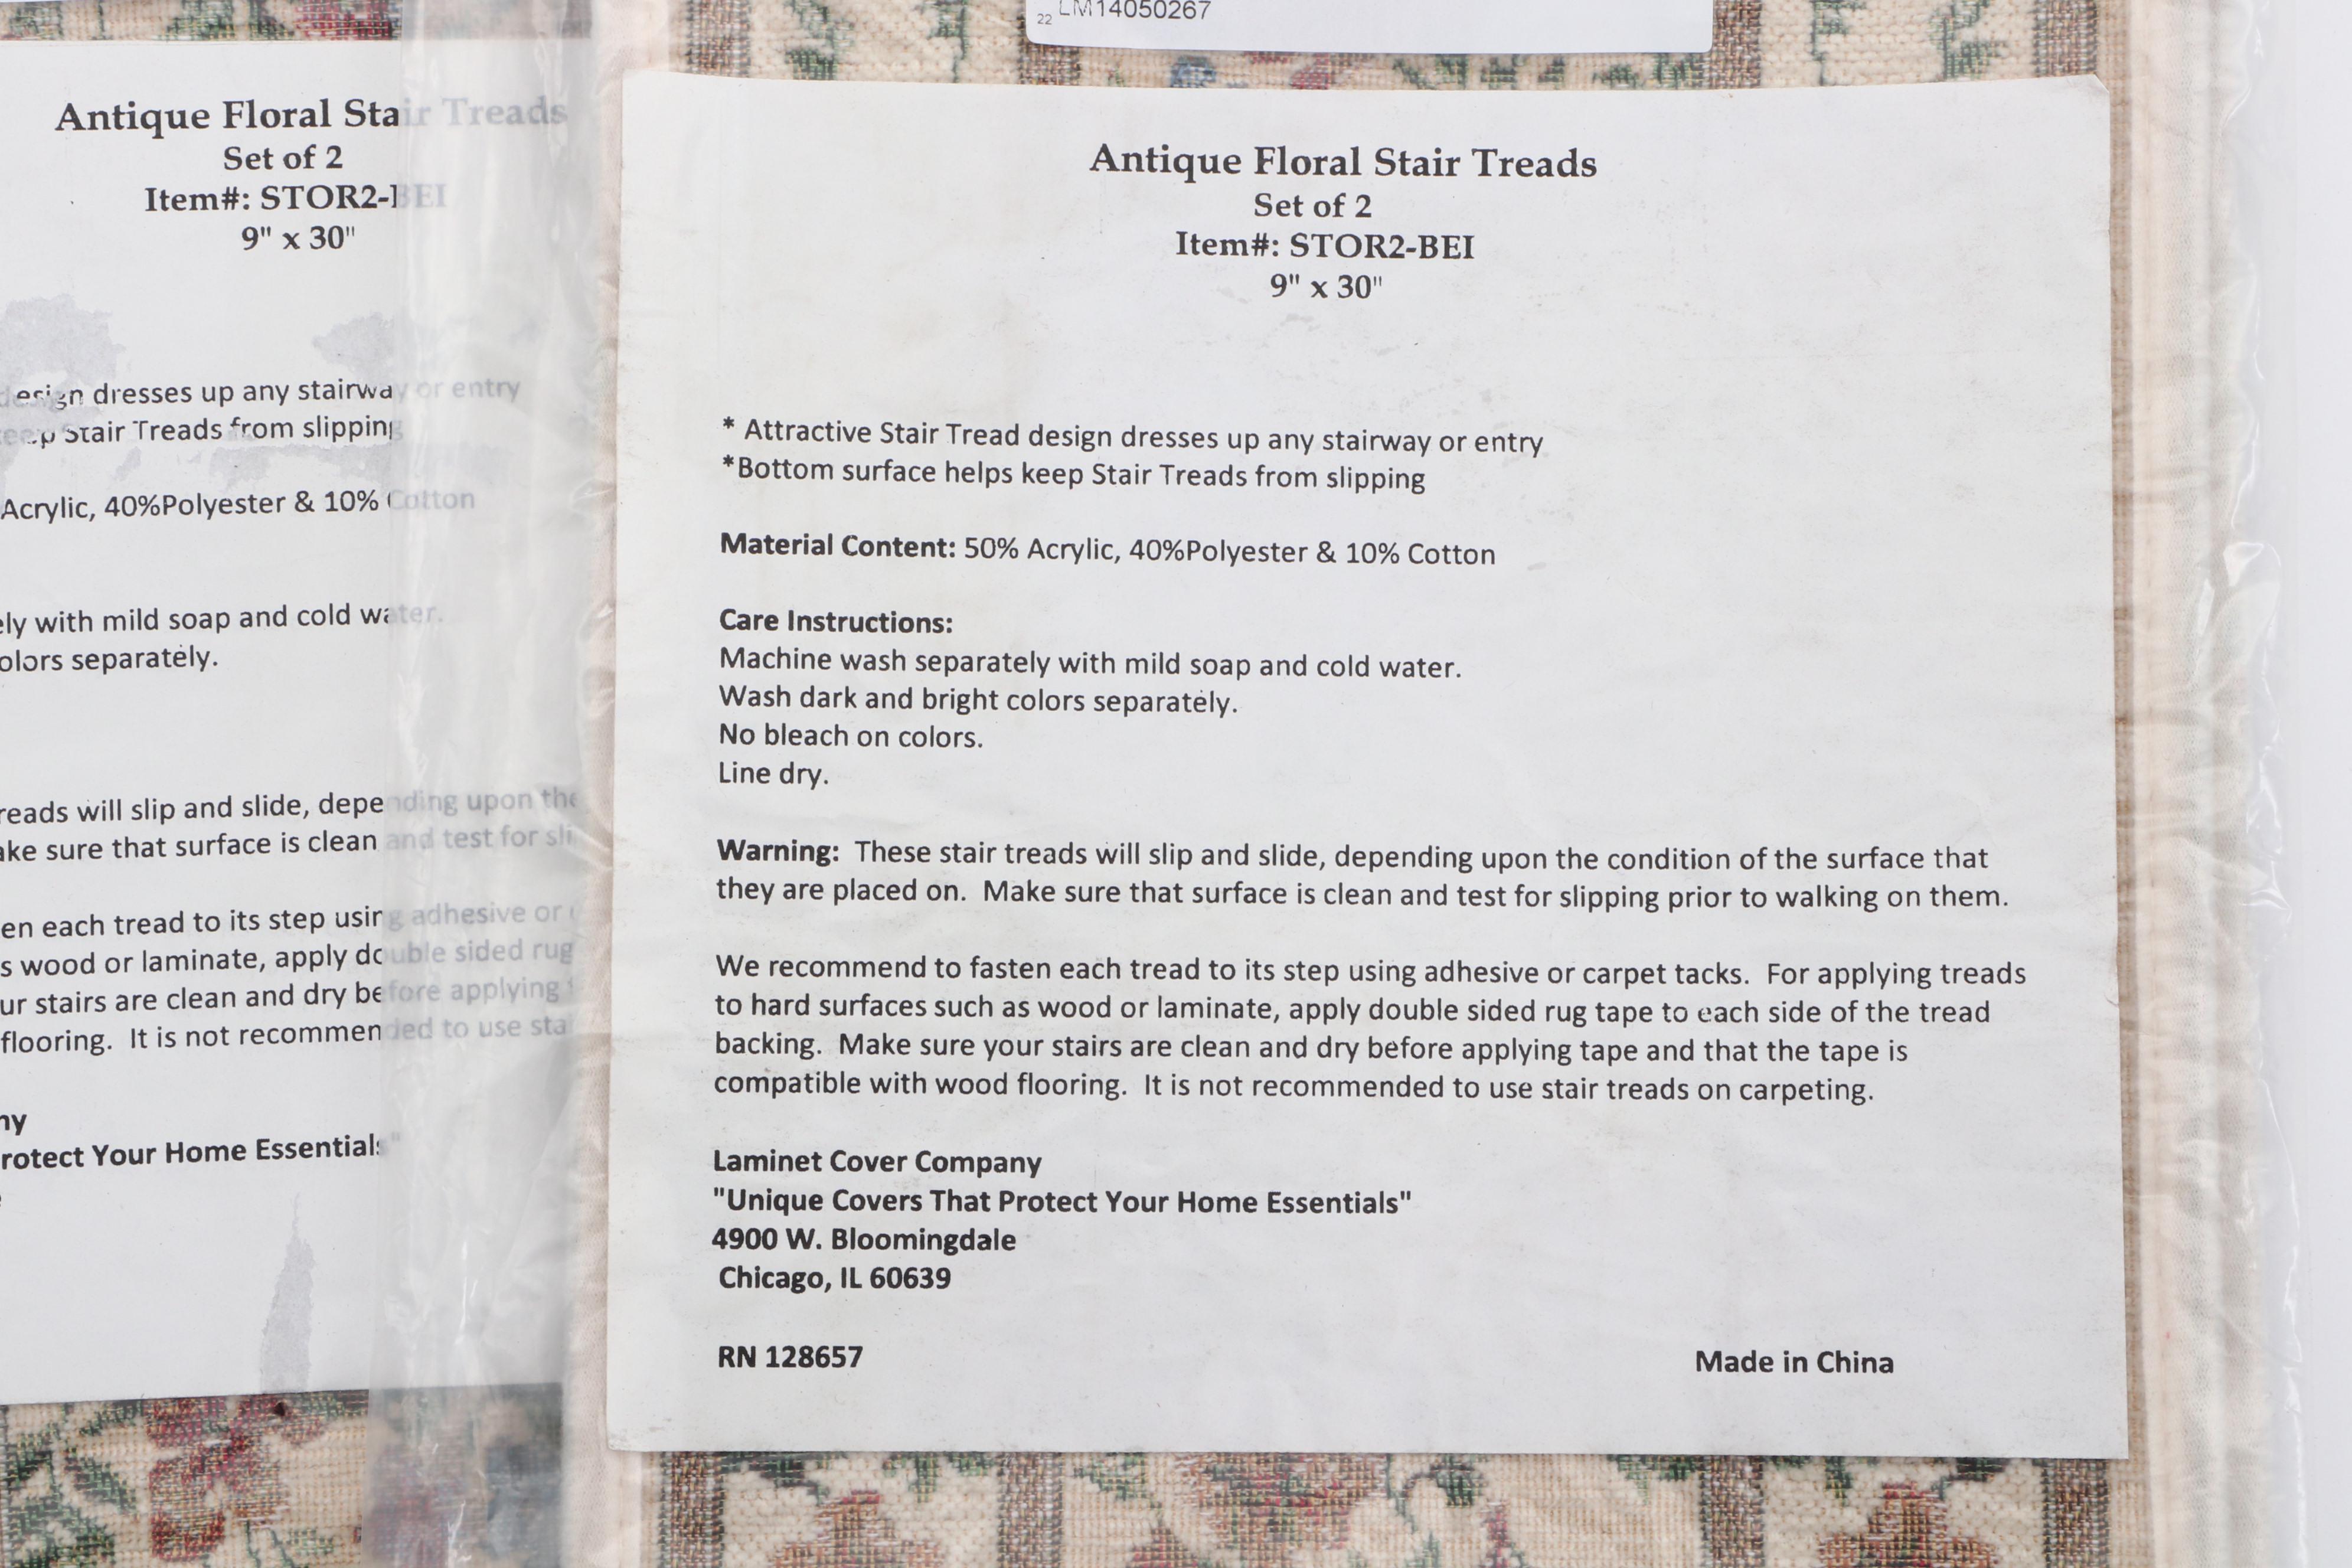 22 LM14050267
Antique Floral Stair Treads
Set of 2
Item#: STOR2-BEI
9" x 30"
design dresses up any stairway or entry
keep Stair Treads from slipping
Acrylic, 40%Polyester & 10% Cotton
ely with mild soap and cold water.
olors separately.
reads will slip and slide, depending upon the
ake sure that surface is clean and test for sli
en each tread to its step using adhesive or
s wood or laminate, apply double sided rug
ur stairs are clean and dry before applying
flooring.  It is not recommended to use sta
ny
rotect Your Home Essentials"
Antique Floral Stair Treads
Set of 2
Item#: STOR2-BEI
9" x 30"
* Attractive Stair Tread design dresses up any stairway or entry
*Bottom surface helps keep Stair Treads from slipping
Material Content: 50% Acrylic, 40%Polyester & 10% Cotton
Care Instructions:
Machine wash separately with mild soap and cold water.
Wash dark and bright colors separately.
No bleach on colors.
Line dry.
Warning:  These stair treads will slip and slide, depending upon the condition of the surface that
they are placed on.  Make sure that surface is clean and test for slipping prior to walking on them.
We recommend to fasten each tread to its step using adhesive or carpet tacks.  For applying treads
to hard surfaces such as wood or laminate, apply double sided rug tape to each side of the tread
backing.  Make sure your stairs are clean and dry before applying tape and that the tape is
compatible with wood flooring.  It is not recommended to use stair treads on carpeting.
Laminet Cover Company
"Unique Covers That Protect Your Home Essentials"
4900 W. Bloomingdale
Chicago, IL 60639
RN 128657
Made in China